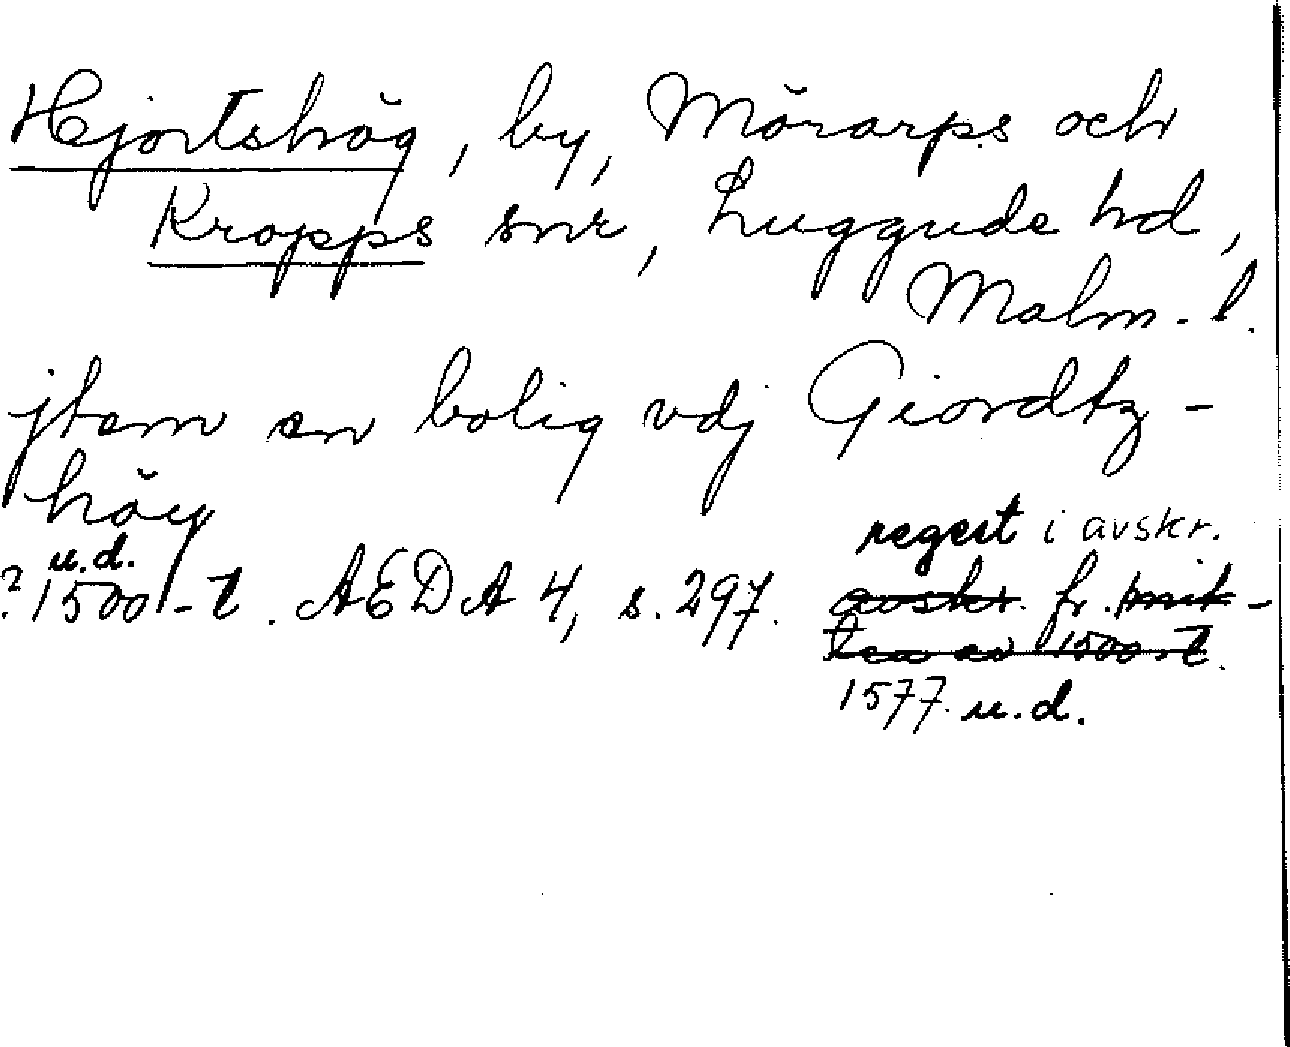 Hjortshög, by, Mörarps och
Kropps snr, Luggude hd,
Malm. l.
jtem en bolig vdj Giordtz-
höy
u.d.
? 1500-t. AEDA 4, s. 297.
regest i avskr.
avskr. fr. mit-
ten av 1500-t.
1577 u.d.